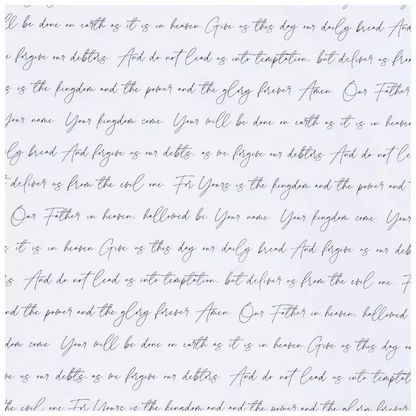 ll be done on earth as it is in heaven Give us this day our daily bread And
e forgive our debtors. And do not lead us into temptation, but deliver us from
s is the kingdom and the power and the glory forever Amen. Our Father
your name. Your kingdom come. Your will be done on earth as it is in heaven
ly bread And forgive us our debts, as we forgive our debtors. And do not le
t deliver us from the evil one. For Yours is the kingdom and the power and
Our Father in heaven, hallowed be Your name. Your kingdom come. Your
s it is in heaven Give us this day our daily bread And forgive us our deb
rs. And do not lead us into temptation, but deliver us from the evil one. F
nd the power and the glory forever Amen. Our Father in heaven, hallowed
dom come. Your will be done on earth as it is in heaven. Give us this day o
ve us our debts, as we forgive our debtors. And do not lead us into temptat
the evil one. For Yours is the kingdom and the power and the glory forever